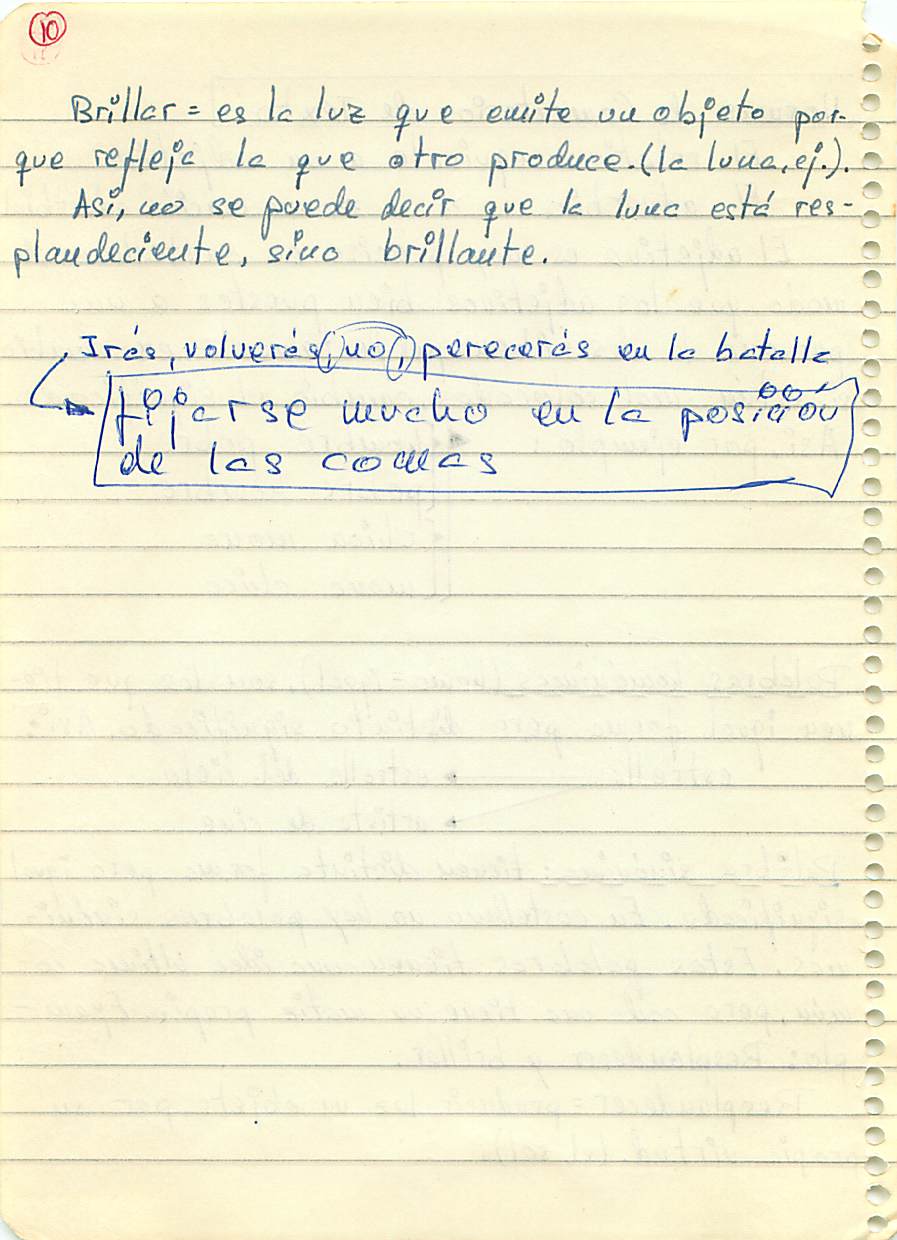 10
Brillar = es la luz que emite un objeto por-
que refleja la que otro produce. (la luna, ej.).
Así, no se puede decir que la luna está res-
plandeciente, sino brillante.
Irás, volverás (,) no (,) perecerás en la batalla
fijarse mucho en la posición
de las comas